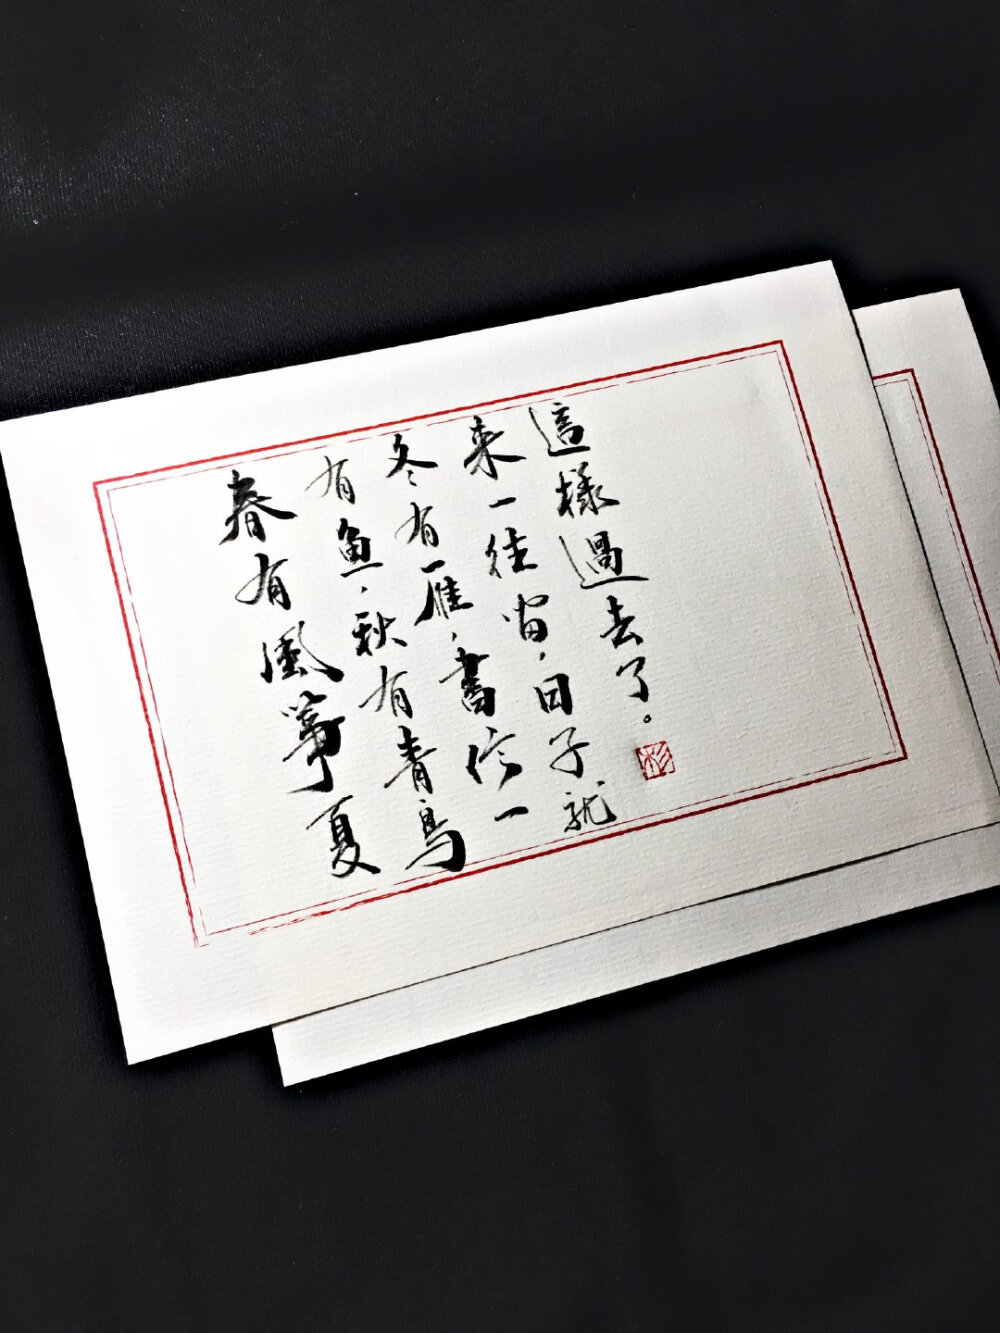 春有風箏夏
有魚，秋有青鳥
冬有雁，書信一
來一往間，日子就
這樣過去了。